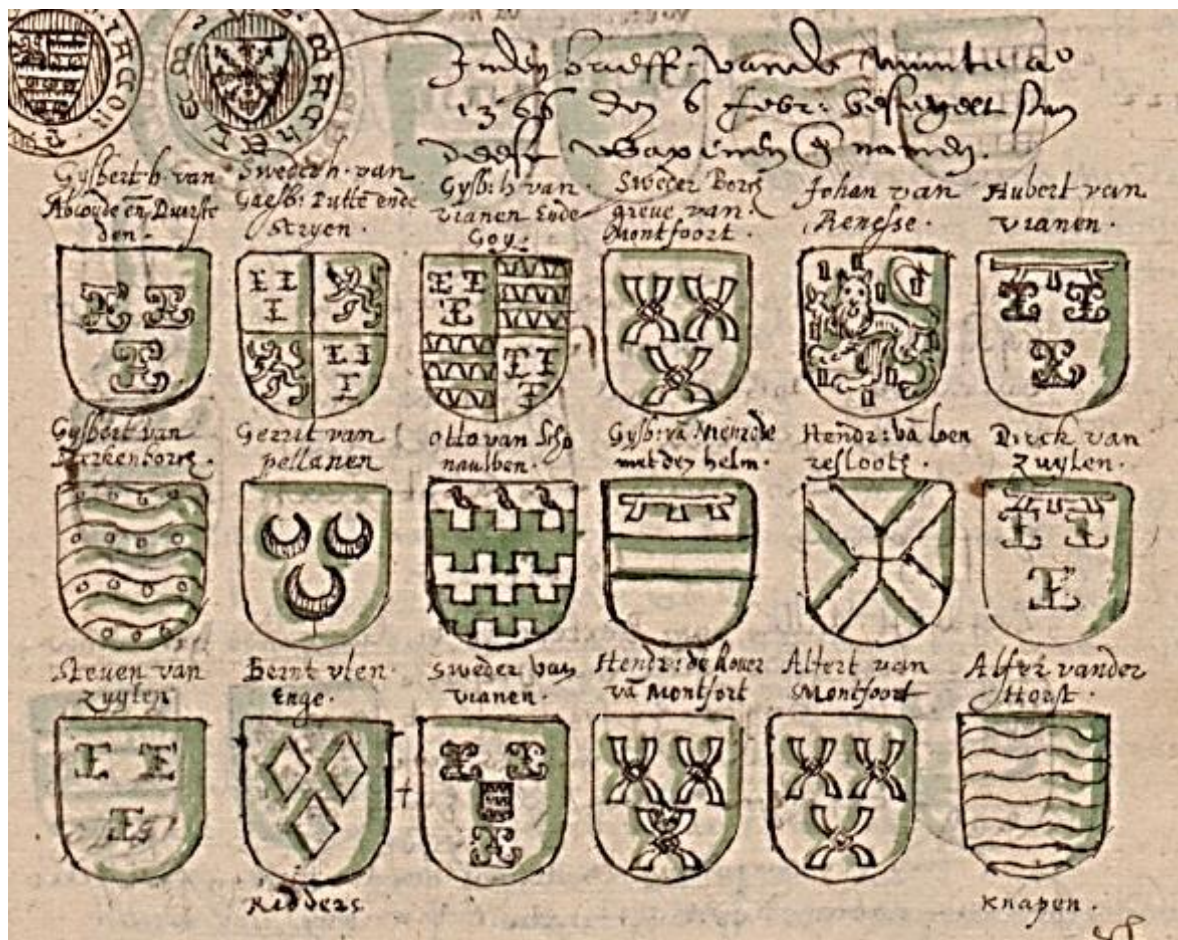 Inden brieff vande munt in a°
1366 den 6 febr: besegelt sijn
deese wapenen en namen.
Gysbert h. van
Abcoude en Duerste
den.
Sweder h. van
Gaesb: Putte ende
Stryen.
Gysb: h van
Vianen Ende
Goy.
Sweder Borg
greve van
Montfoort.
Johan van
Renesse.
Hubert van
Vianen.
Gysbert van
Sterkenborg.
Gerrit van
pollanen
otto van Scho
nauwen.
Gysb: va Nienrode
met den helm.
Hendr: va Loen
resloots.
Dirck van
Zuylen.
Steven van
Zuylen
Bernt vten
Enge.
Sweder van
Vianen.
Hendr: de Rover
va Montfort
Alfert van
Montfoort
Alfer vander
Horst.
Ridders
Knapen.